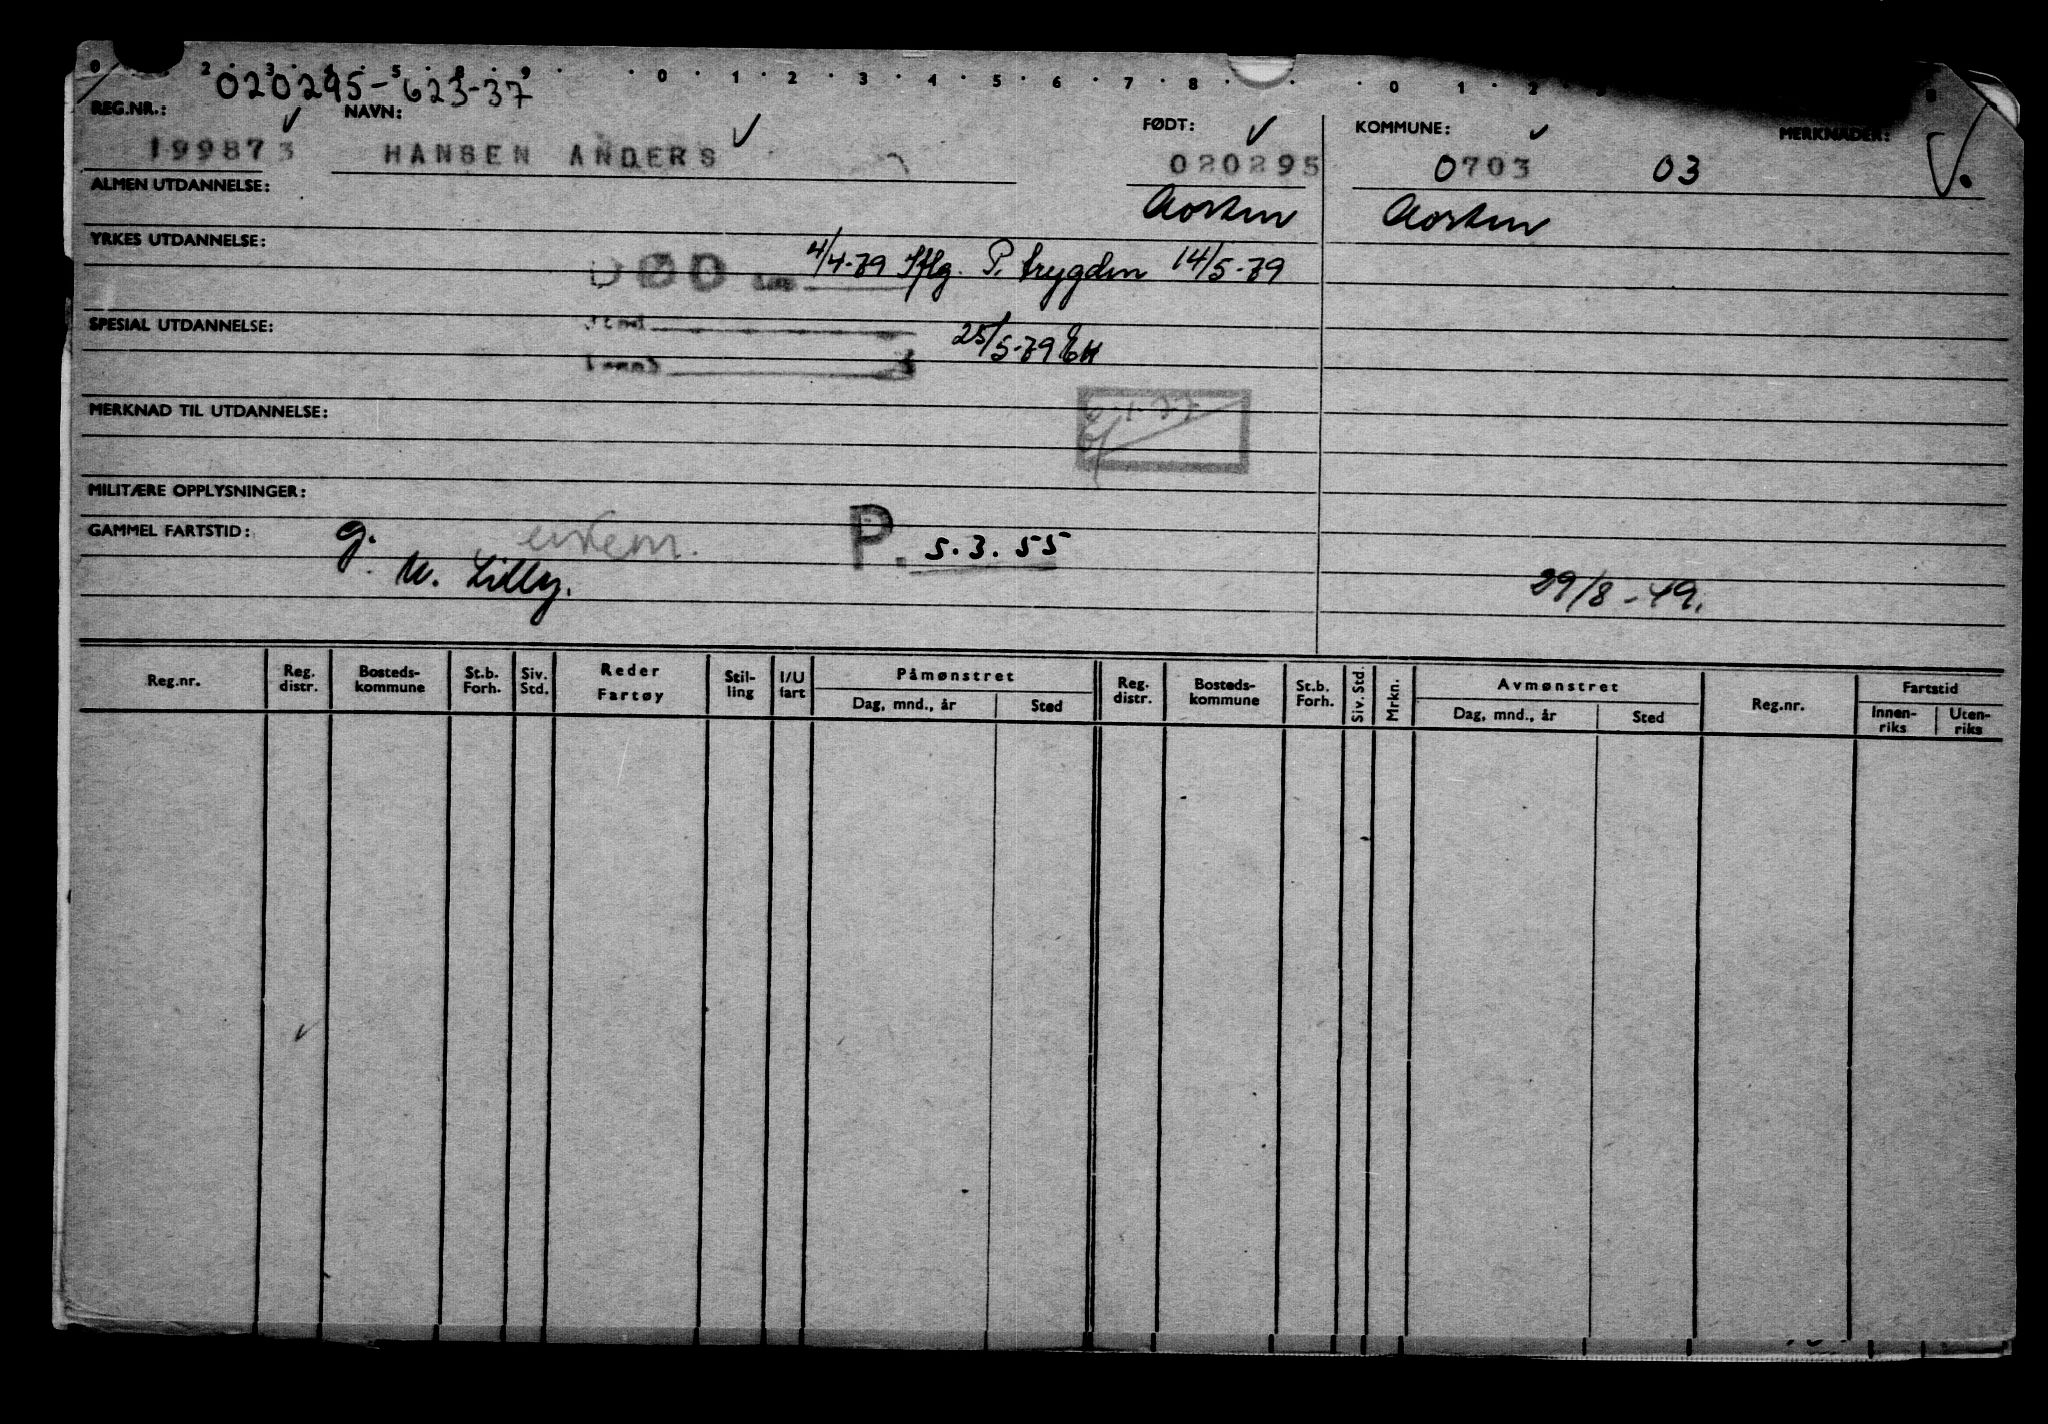 020295-623-37
REG.NR.: NAVN: FØDT: KOMMUNE: MERKNADER:
199873 HANSEN ANDERS 020295 0703 03
ALMEN UTDANNELSE: Horten Horten
YRKES UTDANNELSE:
DØD 4/4-79 Iflg. P. trygden 14/5-79
SPESIAL UTDANNELSE:
Sted
25/5-79
MERKNAD TIL UTDANNELSE:
MILITÆRE OPPLYSNINGER:
GAMMEL FARTSTID: g. enkem. P. 5.3.55
u. Lilly. 29/8-49.
Reg.nr. Reg. distr. Bosteds-kommune St.b. Forh. Siv. Std. Reder Fartøy Stil-ling I/U fart Påmønstret Reg. distr. Bosteds-kommune St.b. Forh. Siv. Std. Mrkn. Avmønstret Reg.nr. Fartstid
Dag, mnd., år Sted Dag, mnd., år Sted Innen-riks Uten-riks